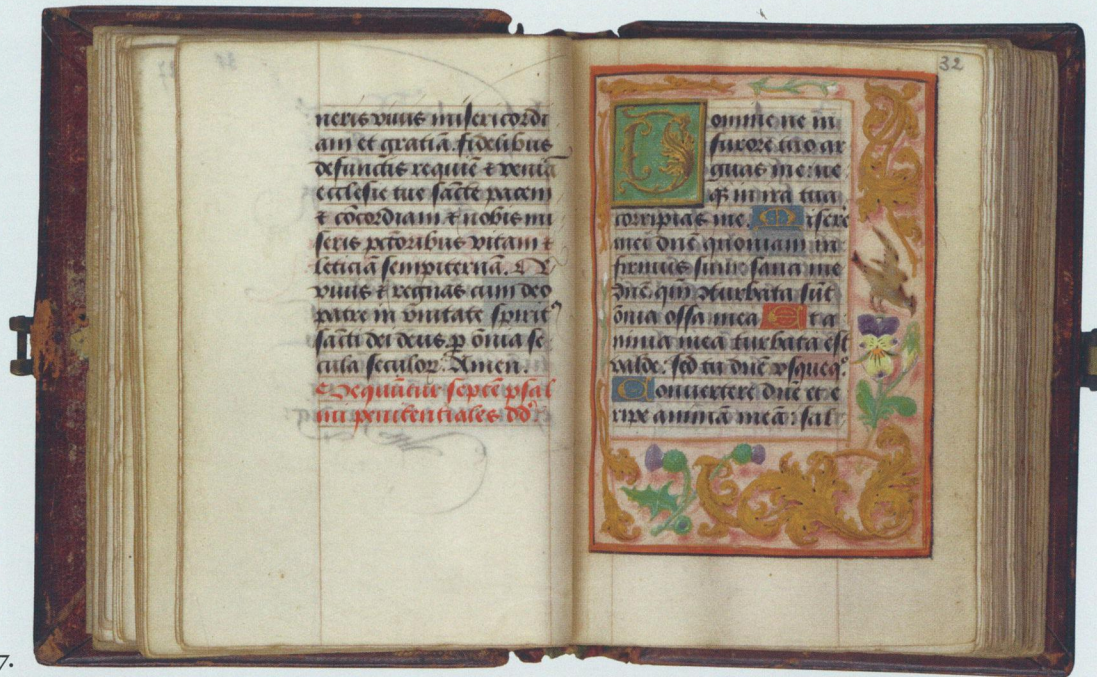 neris viuis misericordi
am et gratiā. fidelibus
defunctis requiē ⁊ veniā
ecclesie tue sancte pacem
⁊ cōcordiam ⁊ nobis mi
seris pctoribus vitam ⁊
leticiā sempiternā. Q̄
viuis ⁊ regnas cum deo
patre in vnitate spirit⁹
sācti dei deus. ꝑ ōnia se
cula seculoꝝ. Amen.
Sequūtur septē psal
mi penitentiales dd
32
Domine ne in
furore tuo ar
guas me: ne
q̄ in ira tua
corripias me. Misere
mei dn̄e quoniam in
firmus sum: sana me
dn̄e qm̄ ꝯturbata sūt
ōnia ossa mea Et a
nima mea turbata est
valde: sed tu dn̄e vsqueq⁹.
Conuertere dn̄e et e
ripe animā meā: sal
7.